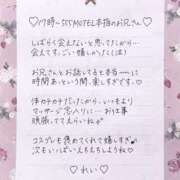 ♡17時〜555MOTEL本指のお兄さん♡
しばらく会えないと思ってたから…
会えてすっごい嬉しかった(ᵕ̈)
お兄さんとお話してると本当に
時間あっという間で、寂しすぎる♡
体ガチガチだったから、いつもより
マッサージ念入りに♡お仕事
頑張っててえらいね♡
コスプレも褒めてくれて嬉しすぎ♪
次もいっぱいえちえちしようね♡
♡れい♡